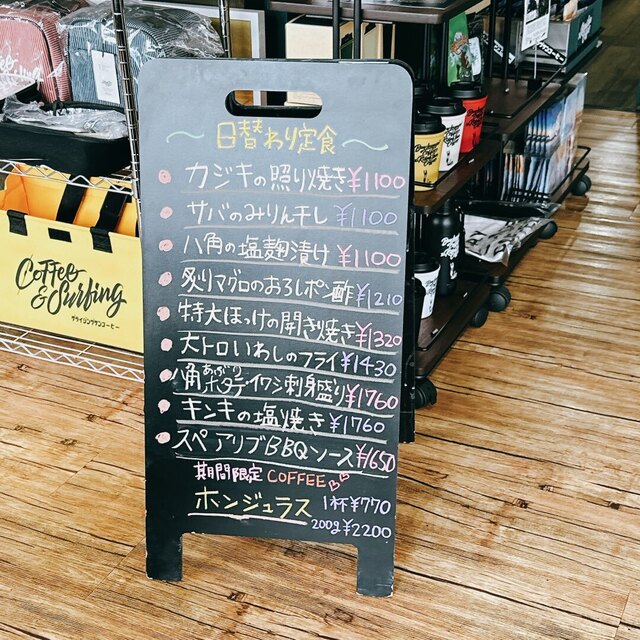 日替わり定食
カジキの照り焼き ¥1100
サバのみりん干し ¥1100
八角の塩麹漬け ¥1100
炙りマグロのおろしポン酢 ¥1210
特大ほっけの開き焼き ¥1320
大トロいわしのフライ ¥1430
八角 あぶりホタテ イワシ刺身盛り ¥1760
キンキの塩焼き ¥1760
スペアリブBBQソース ¥1650
期間限定 COFFEE
ホンジュラス 1杯¥770
200g¥2200
Coffee
& Surfing
ライジングサンコーヒー